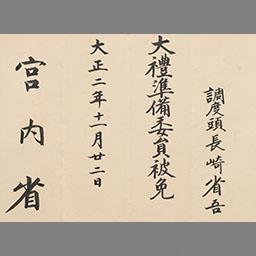 調度頭長崎省吾
大禮準備委員被免
大正二年十一月廿二日
宮内省